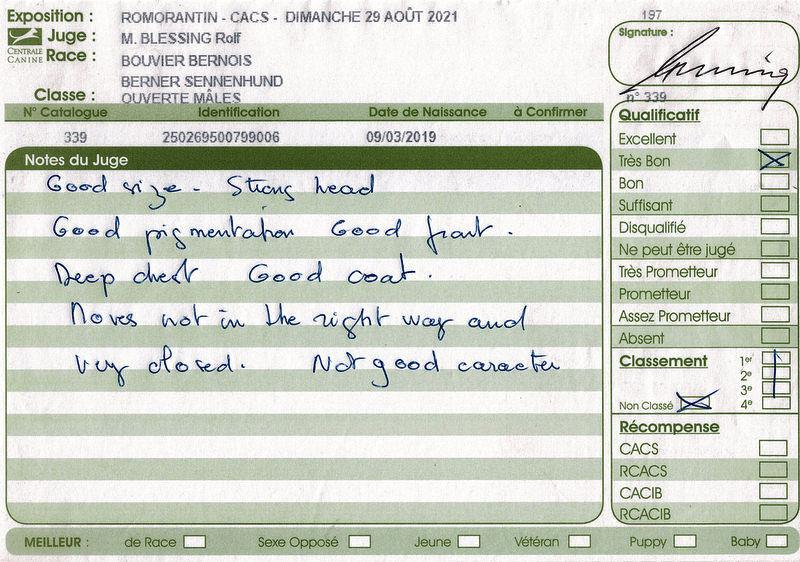 Exposition : ROMORANTIN - CACS - DIMANCHE 29 AOÛT 2021
197
CENTRALE CANINE
Juge : M. BLESSING Rolf
Race : BOUVIER BERNOIS
BERNER SENNENHUND
Classe : OUVERTE MÂLES
Signature :
n° 339
N° Catalogue Identification Date de Naissance à Confirmer
339 250269500799006 09/03/2019
Notes du Juge
Good size - Strong head
Good pigmentation Good front.
Deep chest Good coat.
Moves not in the right way and
very closed. Not good caracter
Qualificatif
Excellent
Très Bon
Bon
Suffisant
Disqualifié
Ne peut être jugé
Très Prometteur
Prometteur
Assez Prometteur
Absent
Classement 1er
2e
3e
Non Classé 4e
Récompense
CACS
RCACS
CACIB
RCACIB
MEILLEUR : de Race Sexe Opposé Jeune Vétéran Puppy Baby